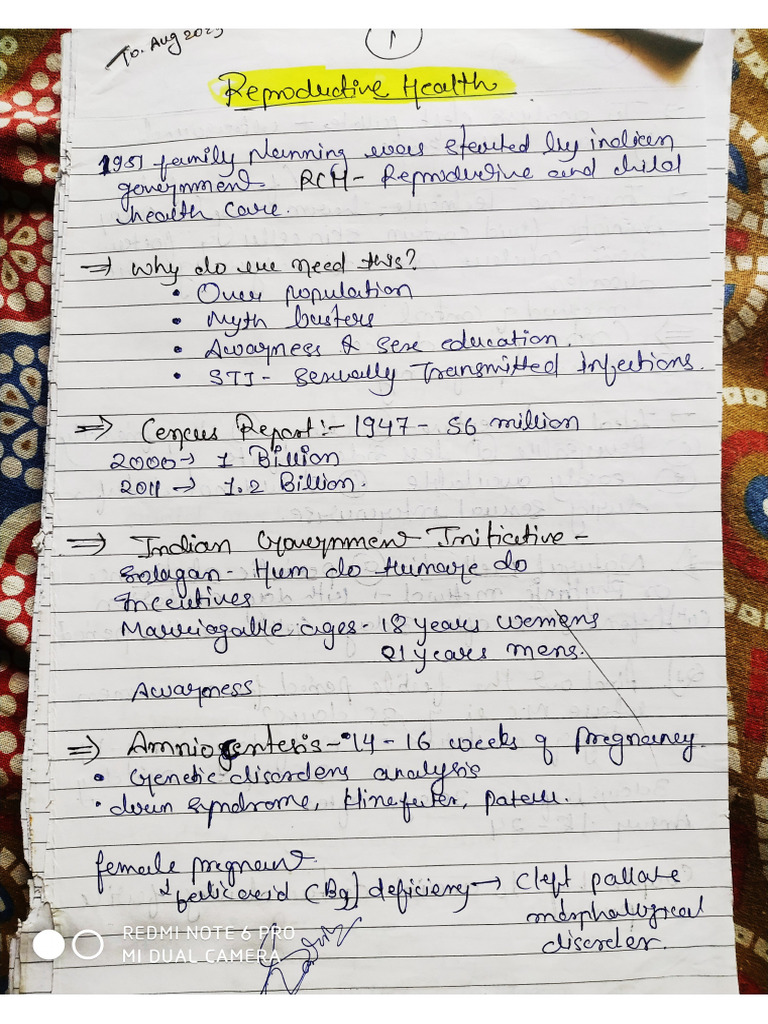 To. Aug 2023
1
Reproductive Health
1951 family planning was started by indian
government RCH - Reproductive and child
health care.
⇒ Why do we need this?
• Over population
• Myth busters
• Awarness & sex education.
• STI - Sexually Transmitted Infections.
⇒ Cencus Report :- 1947 - 56 million
2000 → 1 Billion
2011 → 1.2 Billion.
⇒ Indian Government Initicative -
Solagan - Hum do Humare do
Incentives
Marriogable ages - 18 years womens
21 years mens.
Awarness
⇒ Amniocentesis - • 14 - 16 weeks of pregnancy.
• Genetic disorders analysis
• down syndrome, klinefelter,
female pregnant.
folic acid (B9) deficiency → Cleft pallate
morphological
disorder.
REDMI NOTE 6 PRO
MI DUAL CAMERA